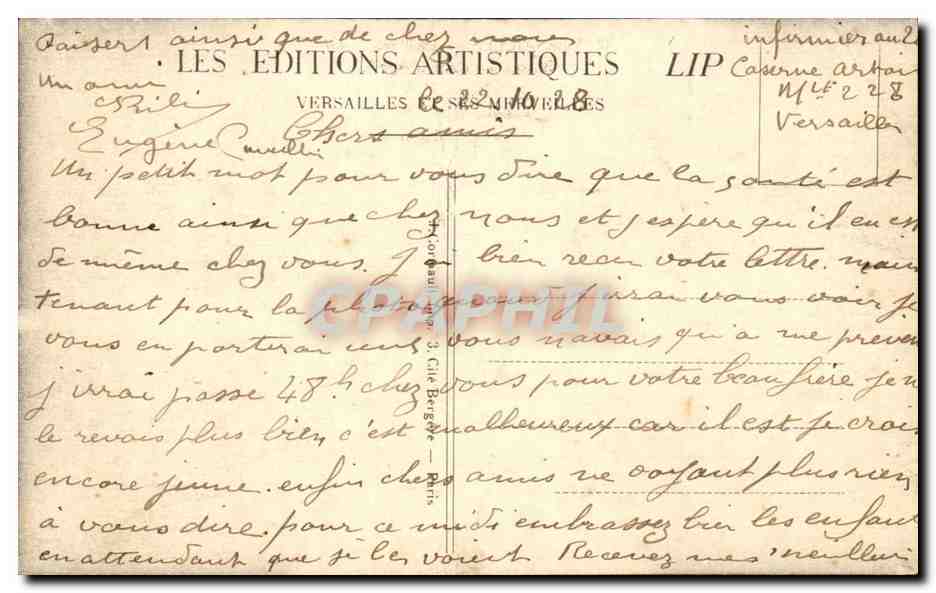 Baisers ainsi que de chez nous
infirmier au 2
Un ami
LES EDITIONS ARTISTIQUES LIP
Caserne
Mle 228
VERSAILLES ET SES MERVEILLES
Le 22.10.28
Versailles
Eugène
Chers amis
Un petit mot pour vous dire que la santé est
bonne ainsi que chez nous et j espère qu'il en est
de même chez vous. J'ai bien recu votre lettre. main
tenant pour la photo quand j irrai vous voir je
vous en porterai une vous n'avais qu'a me preven
j irrai passé 48h chez vous pour votre beau frère je n
le revois plus bien c'est malheureux car il est je crois
encore jeune. enfin chers amis ne voyant plus rien
à vous dire. pour ce midi embrassez bien les enfant
en attendant que je les voient Recevez mes meilleurs
3, Cité Bergère — Paris
CPAPHIL